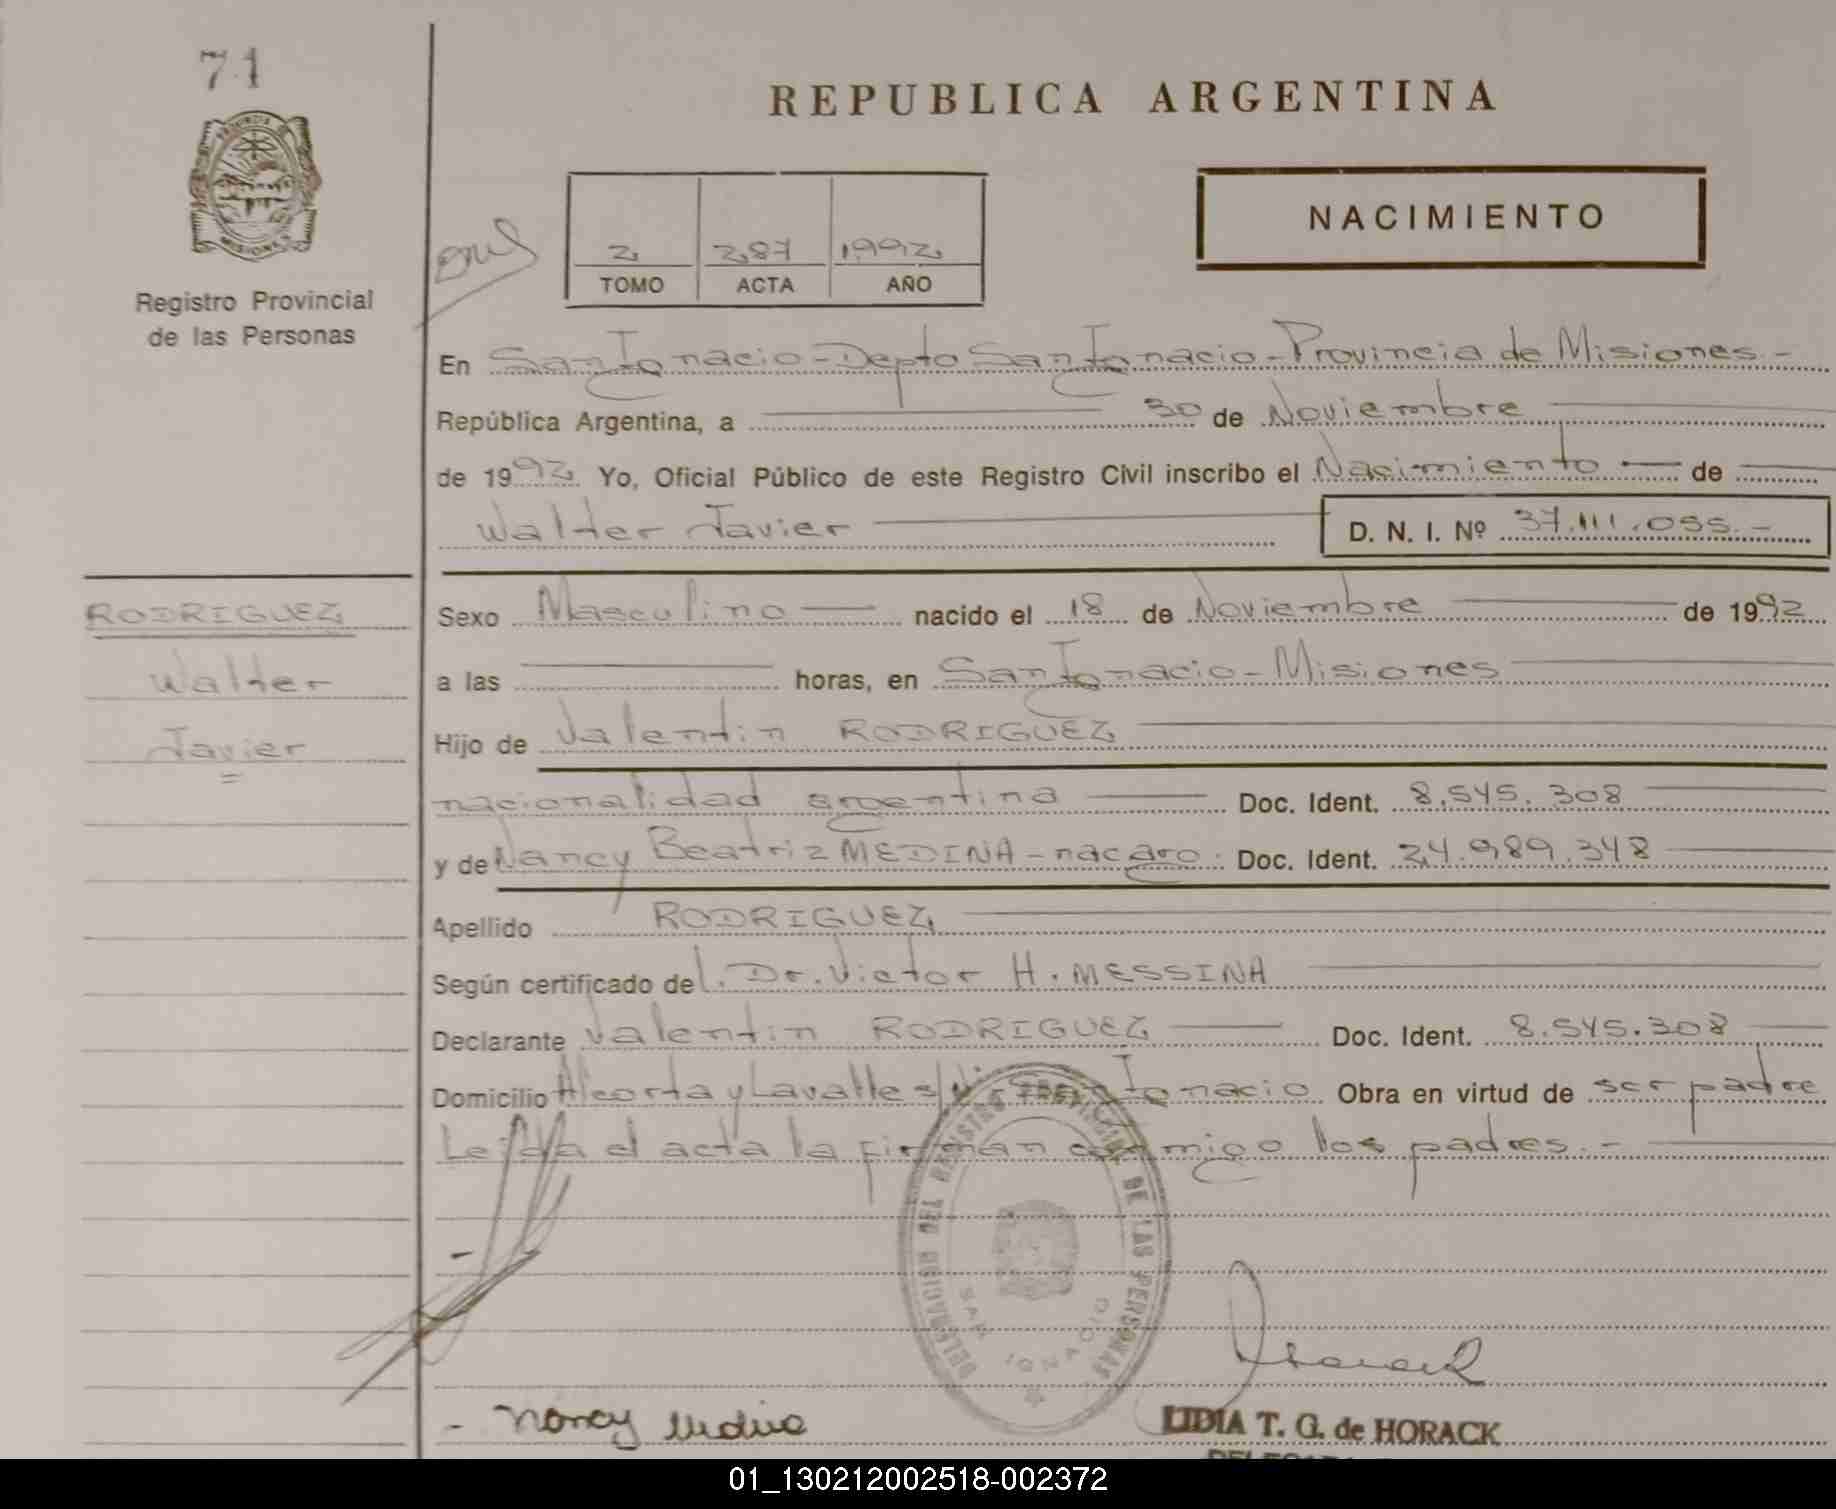 71
REPUBLICA ARGENTINA
PROVINCIA DE MISIONES
Registro Provincial
de las Personas
2 287 1992
TOMO ACTA AÑO
NACIMIENTO
En San Ignacio - Depto San Ignacio - Provincia de Misiones.-
República Argentina, a 30 de Noviembre
de 1992 Yo, Oficial Público de este Registro Civil inscribo el Nacimiento de
Walter Javier D. N. I. Nº 37.111.055.-
RODRIGUEZ
Walter
Javier
Sexo Masculino nacido el 18 de Noviembre de 1992
a las horas, en San Ignacio - Misiones
Hijo de Valentin RODRIGUEZ
nacionalidad argentina Doc. Ident. 8.545.308
y de Nancy Beatriz MEDINA - nac arg. Doc. Ident. 24.989.348
Apellido RODRIGUEZ
Según certificado del. Dr. Victor H. MESSINA
Declarante Valentin RODRIGUEZ Doc. Ident. 8.545.308
Domicilio Alcorta y Lavalle San Ignacio Obra en virtud de ser padre
Leida el acta la firman conmigo los padres.-
DELEGACION DEL REGISTRO PROVINCIAL DE LAS PERSONAS
SAN IGNACIO
- Nancy Medina
LIDIA T. G. de HORACK
01_130212002518-002372